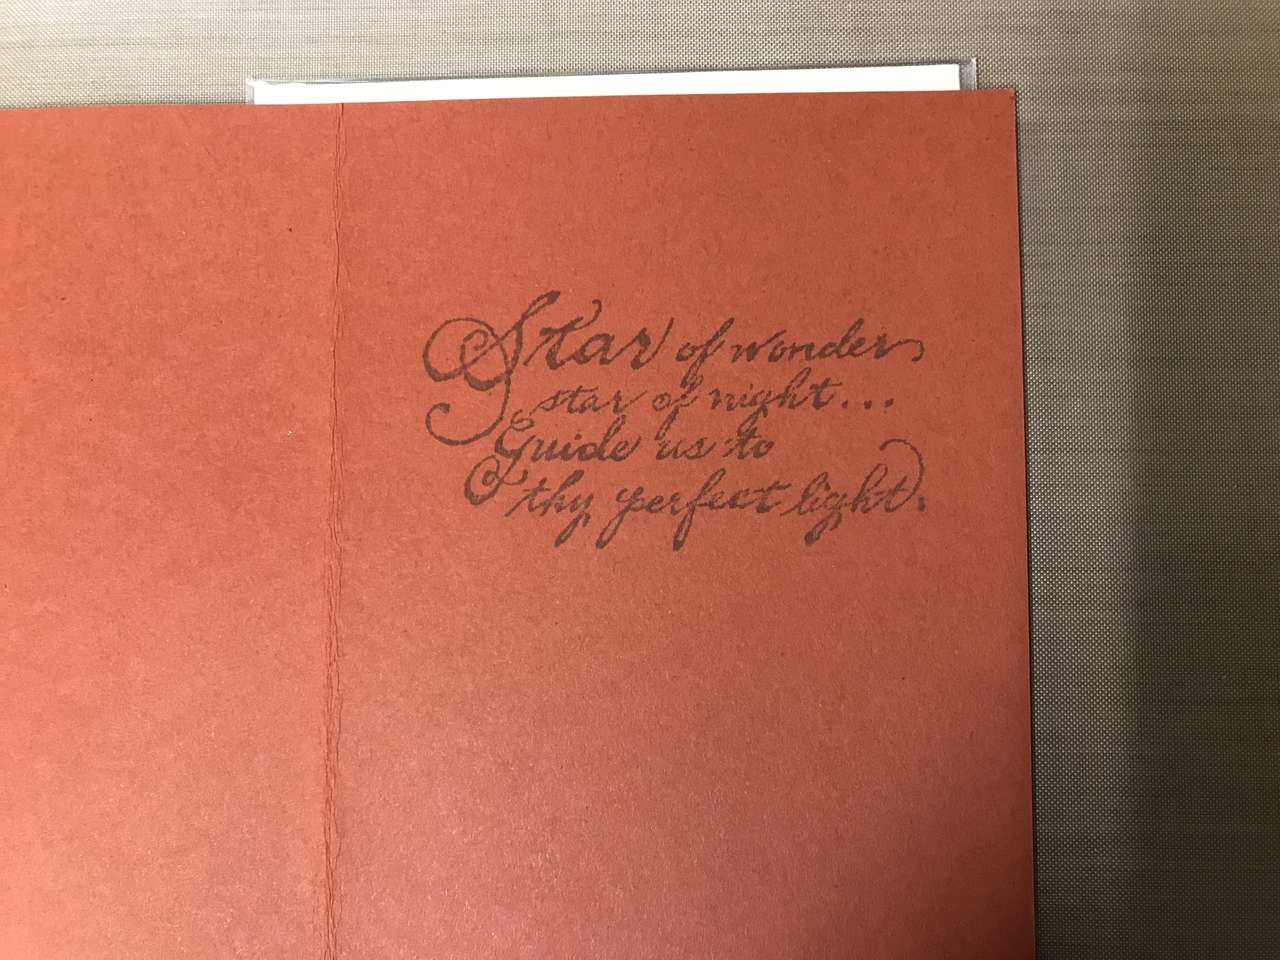 Star of wonder
star of night...
Guide us to
thy perfect light.